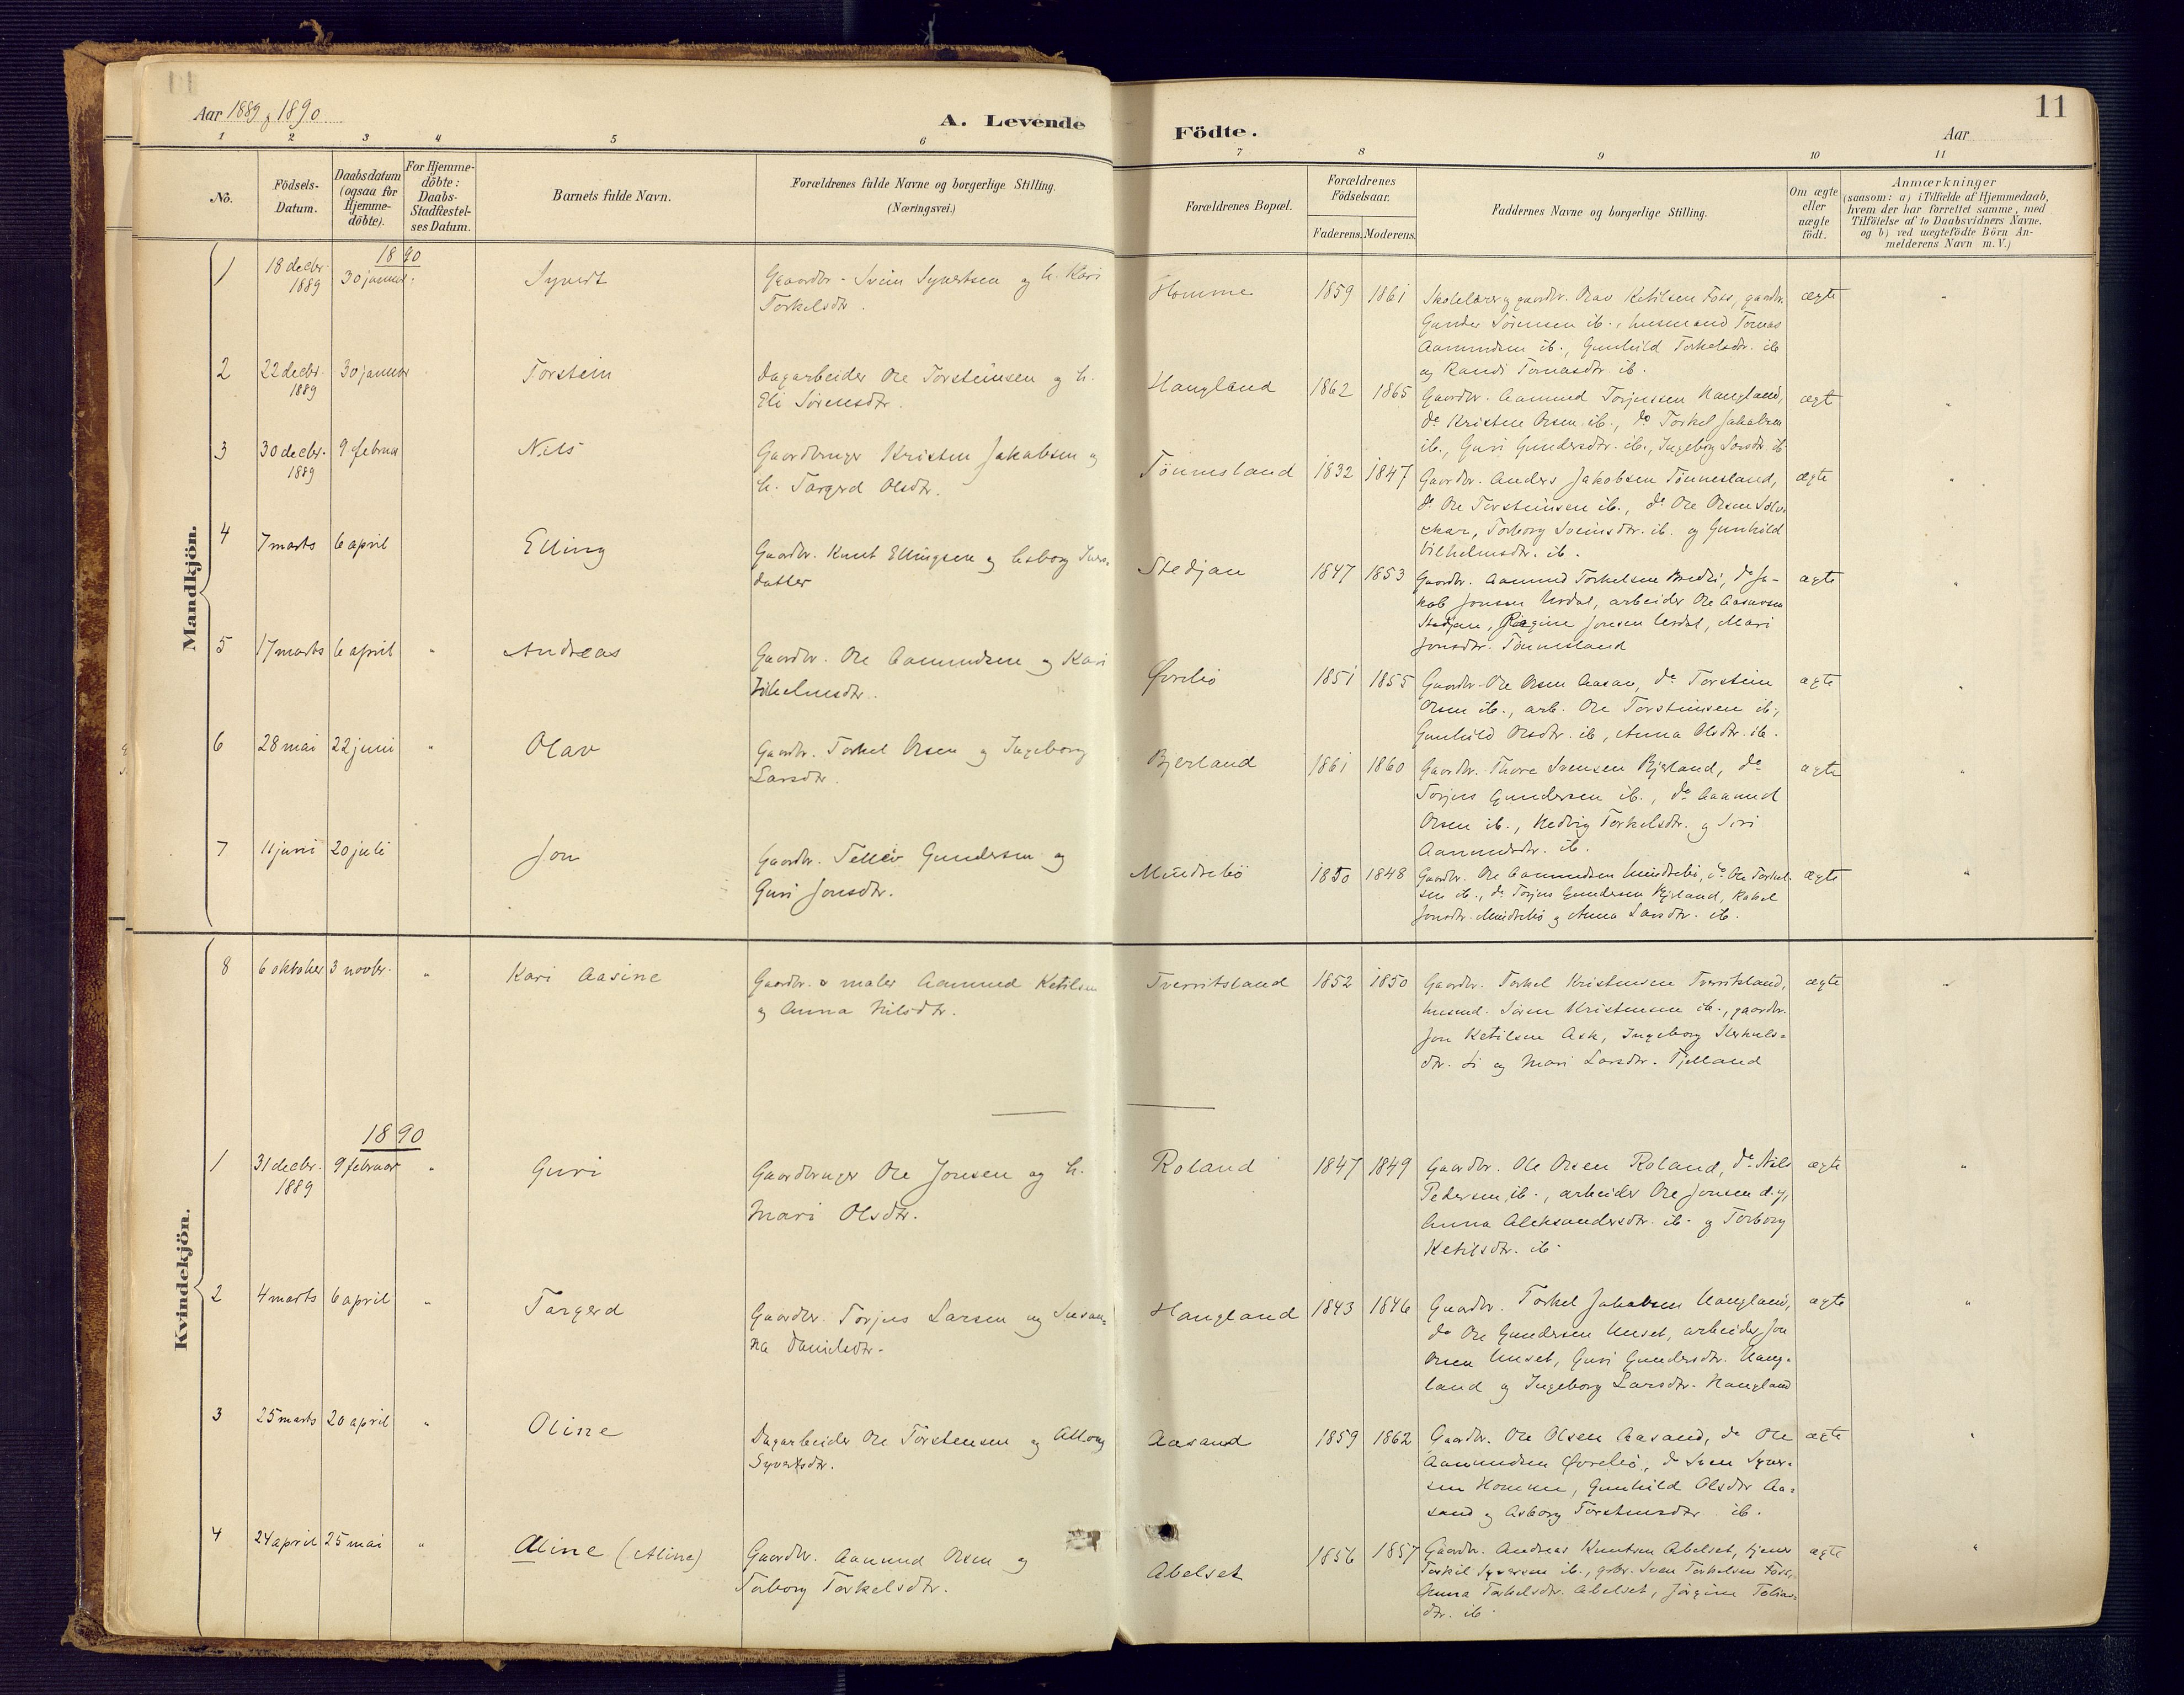 11
Aar 1889 & 1890
A. Levende
Födte.
Aar
11
1 2 3 4 5 6 7 8 9 10 11
No.
Födsels-
Datum.
Daabsdatum
(ogsaa for
Hjemme-
döbte).
For Hjemme-
döbte:
Daabs-
Stadfæstel-
ses Datum.
Barnets fulde Navn.
Forældrenes fulde Navne og borgerlige Stilling.
(Næringsvei.)
Forældrenes Bopæl.
Forældrenes
Födselsaar.
Faderens. Moderens.
Faddernes Navne og borgerlige Stilling.
Om ægte
eller
uægte
født.
Anmærkninger
(saasom: a) i Tilfælde af Hjemmedaab,
hvem der har forrettet samme, med
Tilföielse af to Daabsvidners Navne,
og b) ved uægtefödte Börn An-
melderens Navn m. V.)
Mandkjön.
1890
1 18 decbr. 1889 30 januar Syvert
Gaardbr. Svein Syvertsen og h. Kari
Torkelsdtr.
Homme 1859 1861
Skolelærer og gaardbr. Olav Ketilsen Foss, gaardbr.
Gunder Sörensen ib., husmand Tomas
Aamundsen ib., Gunhild Torkelsdtr. ib
og Randi Tomasdtr. ib.
ægte
2 22 decbr. 1889 30 januar Torstein
Dagarbeider Ole Torsteinsen og h.
Eli Sörensdtr.
Haugland 1862 1865
Gaardbr. Aamund Torjussen Haugland,
do Kristen Olsen ib., do Torkel Jakobsen
ib., Guri Gundersdtr. ib., Ingeborg Larsdtr. ib
ægt
3 30 decbr. 1889 9 februar Nils
Gaardbruger Kristen Jakobsen og
h. Targerd Olsdtr.
Tönnesland 1832 1847
Gaardbr. Anders Jakobsen Tönnesland,
do Ole Torsteinsen ib., do Ole Olsen
Torborg Sveinsdtr. ib. og Gunhild
Vilhelmsdtr. ib.
ægte
4 7 marts 6 april Elling
Gaardbr. Knut Ellingsen og Asborg Ivers-
datter
Stedjan 1847 1853
Gaardbr. Aamund Torkelsen do Ja-
kob Jonsen Urdal, arbeider Ole Aasmundsen
Stedjan, Regine Jonsen Urdal, Mari
Jonsdtr. Tönnesland
ægte
5 17 marts 6 april " Andreas
Gaardbr. Ole Aamundsen og Kari
Vilhelmsdtr.
Øvrebö 1851 1855
Gaardbr. Ole Olsen Aasan, do Torstein
Olsen ib., arb. Ole Torsteinsen ib.,
Gunhild Olsdtr. ib, Anna Olsdtr. ib.
ægte
6 28 mai 22 juni " Olav
Gaardbr. Torkel Olsen og Ingeborg
Larsdtr.
Bjerland 1861 1860
Gaardbr. Thore Svensen Bjerland, do
Torjus Gundersen ib., do Aamund
Olsen ib., Hedvig Torkelsdtr. og Siri
Aamundsdtr. ib.
ægte
7 11 juni 20 juli Jon
Gaardbr. Tellev Gundersen og
Guri Jonsdtr.
Mindrebö 1850 1848
Gaardbr. Ole Aamundsen Mindrebö, do Ole Torkel-
sen ib., do Torjus Gundersen Bjerland, Rakel
Jonsdtr. Mindrebö og Anna Larsdtr. ib.
ægte "
Kvindekjön.
8 6 oktober 3 novbr. " Kari Aasine
Gaardbr. & maler Aamund Ketilsen
og Anna Nilsdtr.
Tveritsland 1852 1850
Gaardbr. Torkel Kristensen Tveritsland,
husmd. Sören Kristensen ib., gaardbr.
Jon Ketilsen Ask, Ingeborg Terkels-
dtr. Li og Mari Larsdtr. Fjelland
ægte "
1890
1 31 decbr. 1889 9 februar " Guri
Gaardbruger Ole Jonsen og h.
Mari Olsdtr.
Roland 1847 1849
Gaardbr. Ole Olsen Roland, do Nils
Pedersen ib., arbeider Ole Jonsen d.y.,
Anna Aleksandersdtr. ib. og Torborg
Ketilsdtr. ib.
ægte "
2 4 marts 6 april " Targerd
Gaardbr. Torjus Larsen og Susan-
na Danielsdtr.
Haugland 1843 1846
Gaardbr. Torkel Jakobsen Haugland,
do Ole Gundersen Huset, arbeider Jon
Olsen Huset, Guri Gundersdtr. Haug-
land og Ingeborg Larsdtr. Haugland
ægte "
3 25 marts 20 april " Oline
Dagarbeider Ole Torstensen og
Syvertsdtr.
Aasand 1859 1862
Gaardbr. Ole Olsen Aasand, do Ole
Aamundsen Øvrebö, do Sven Syver-
sen Homme, Gunhild Olsdtr Aa-
sand og Asborg Torsteinsdtr ib.
ægte "
4 24 april 25 mai " Aline (Aline)
Gaardbr. Aamund Olsen og
Torborg Torkelsdtr.
Abelset 1856 1857
Gaardbr. Andreas Knutsen Abelset, tjener
Torkil Syversen ib., gbr. Sven Torkelsen Foss,
Anna Torkelsdtr. Abelset, Jörgine Tobias-
dtr. ib.
ægte "